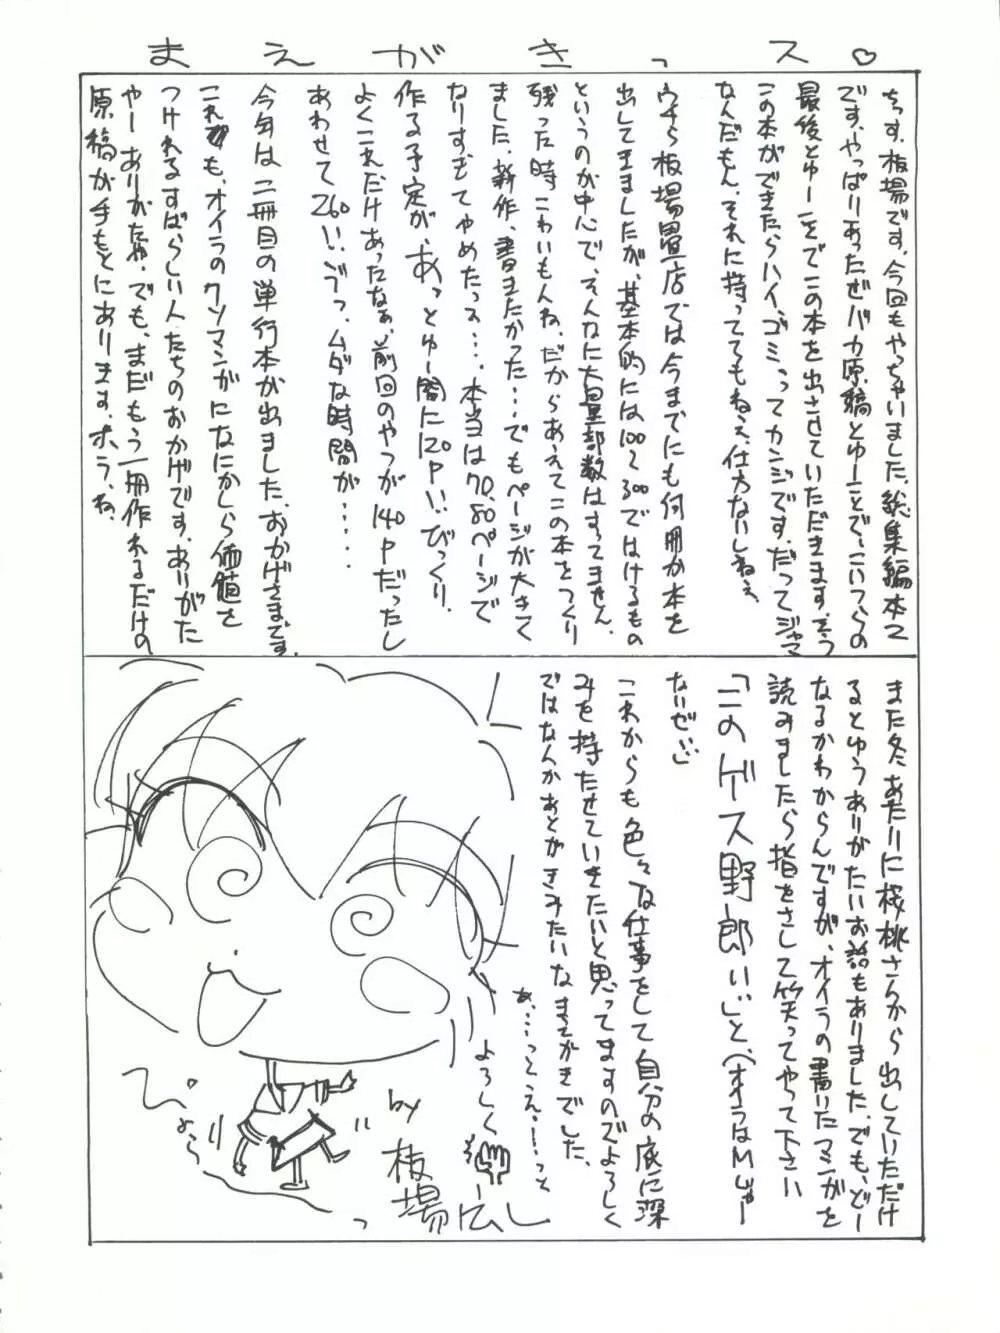 まえがきっス♡
ちす、板場です。今回もやっちゃいました、総集編本で
です。やっぱりあったぜバカ原稿とゆーことで、こいつらの
最後とゆーことでこの本を出させていただきます。どう
この本ができたらハイ、ゴミってカンジです。だってジャマ
なんだもん。それに持っててもねぇ、仕方ないしねぇ
ウチら板場畳店では今までにも何冊か本を
出してきましたが、基本的には100〜300ではけるもの
というのが中心で、そんなに大量部数はすってません。
残った時こわいもんね。だからあえてこの本をつくり
ました。新作、書きたかった…でもページが大きく
なりすぎてやめたっス…。本当は70,80ページで
作る予定が、あっとゆー間に120P!!びっくり。
よくこれだけあったなぁ、前回のやつが140Pだったし
あわせて260!!うっ、ムダな時間が……
今年は二冊目の単行本が出ました。おかげさまです。
これも、オイラのクソマンガになにかしら価値を
つけれるすばらしい人たちのおかげです。ありがた
やー ありがたや。でも、まだもう一冊作れるだけの
原稿が手もとにあります。ホラ、ね。
また冬あたりに桜桃さんから出していただけ
るとゆうありがたいお話もありました。でも、どー
なるかわからんですが、オイラの書いたマンガを
読みましたら指をさして笑ってやって下さい
「このゲス野郎!!」と、(オイラはMじゃー
ないぜ!!)
これからも色々な仕事をして自分の底に深
みを持たせていきたいと思ってますのでよろしく
ではなんかあとがきみたいなまえがきでした。
あ…っとえ…っと
よろしく
by
板場広し
ぴょろっ